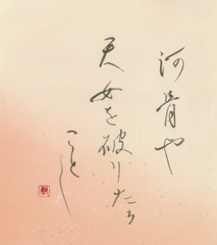 河骨や
天女を破りたる
ことし